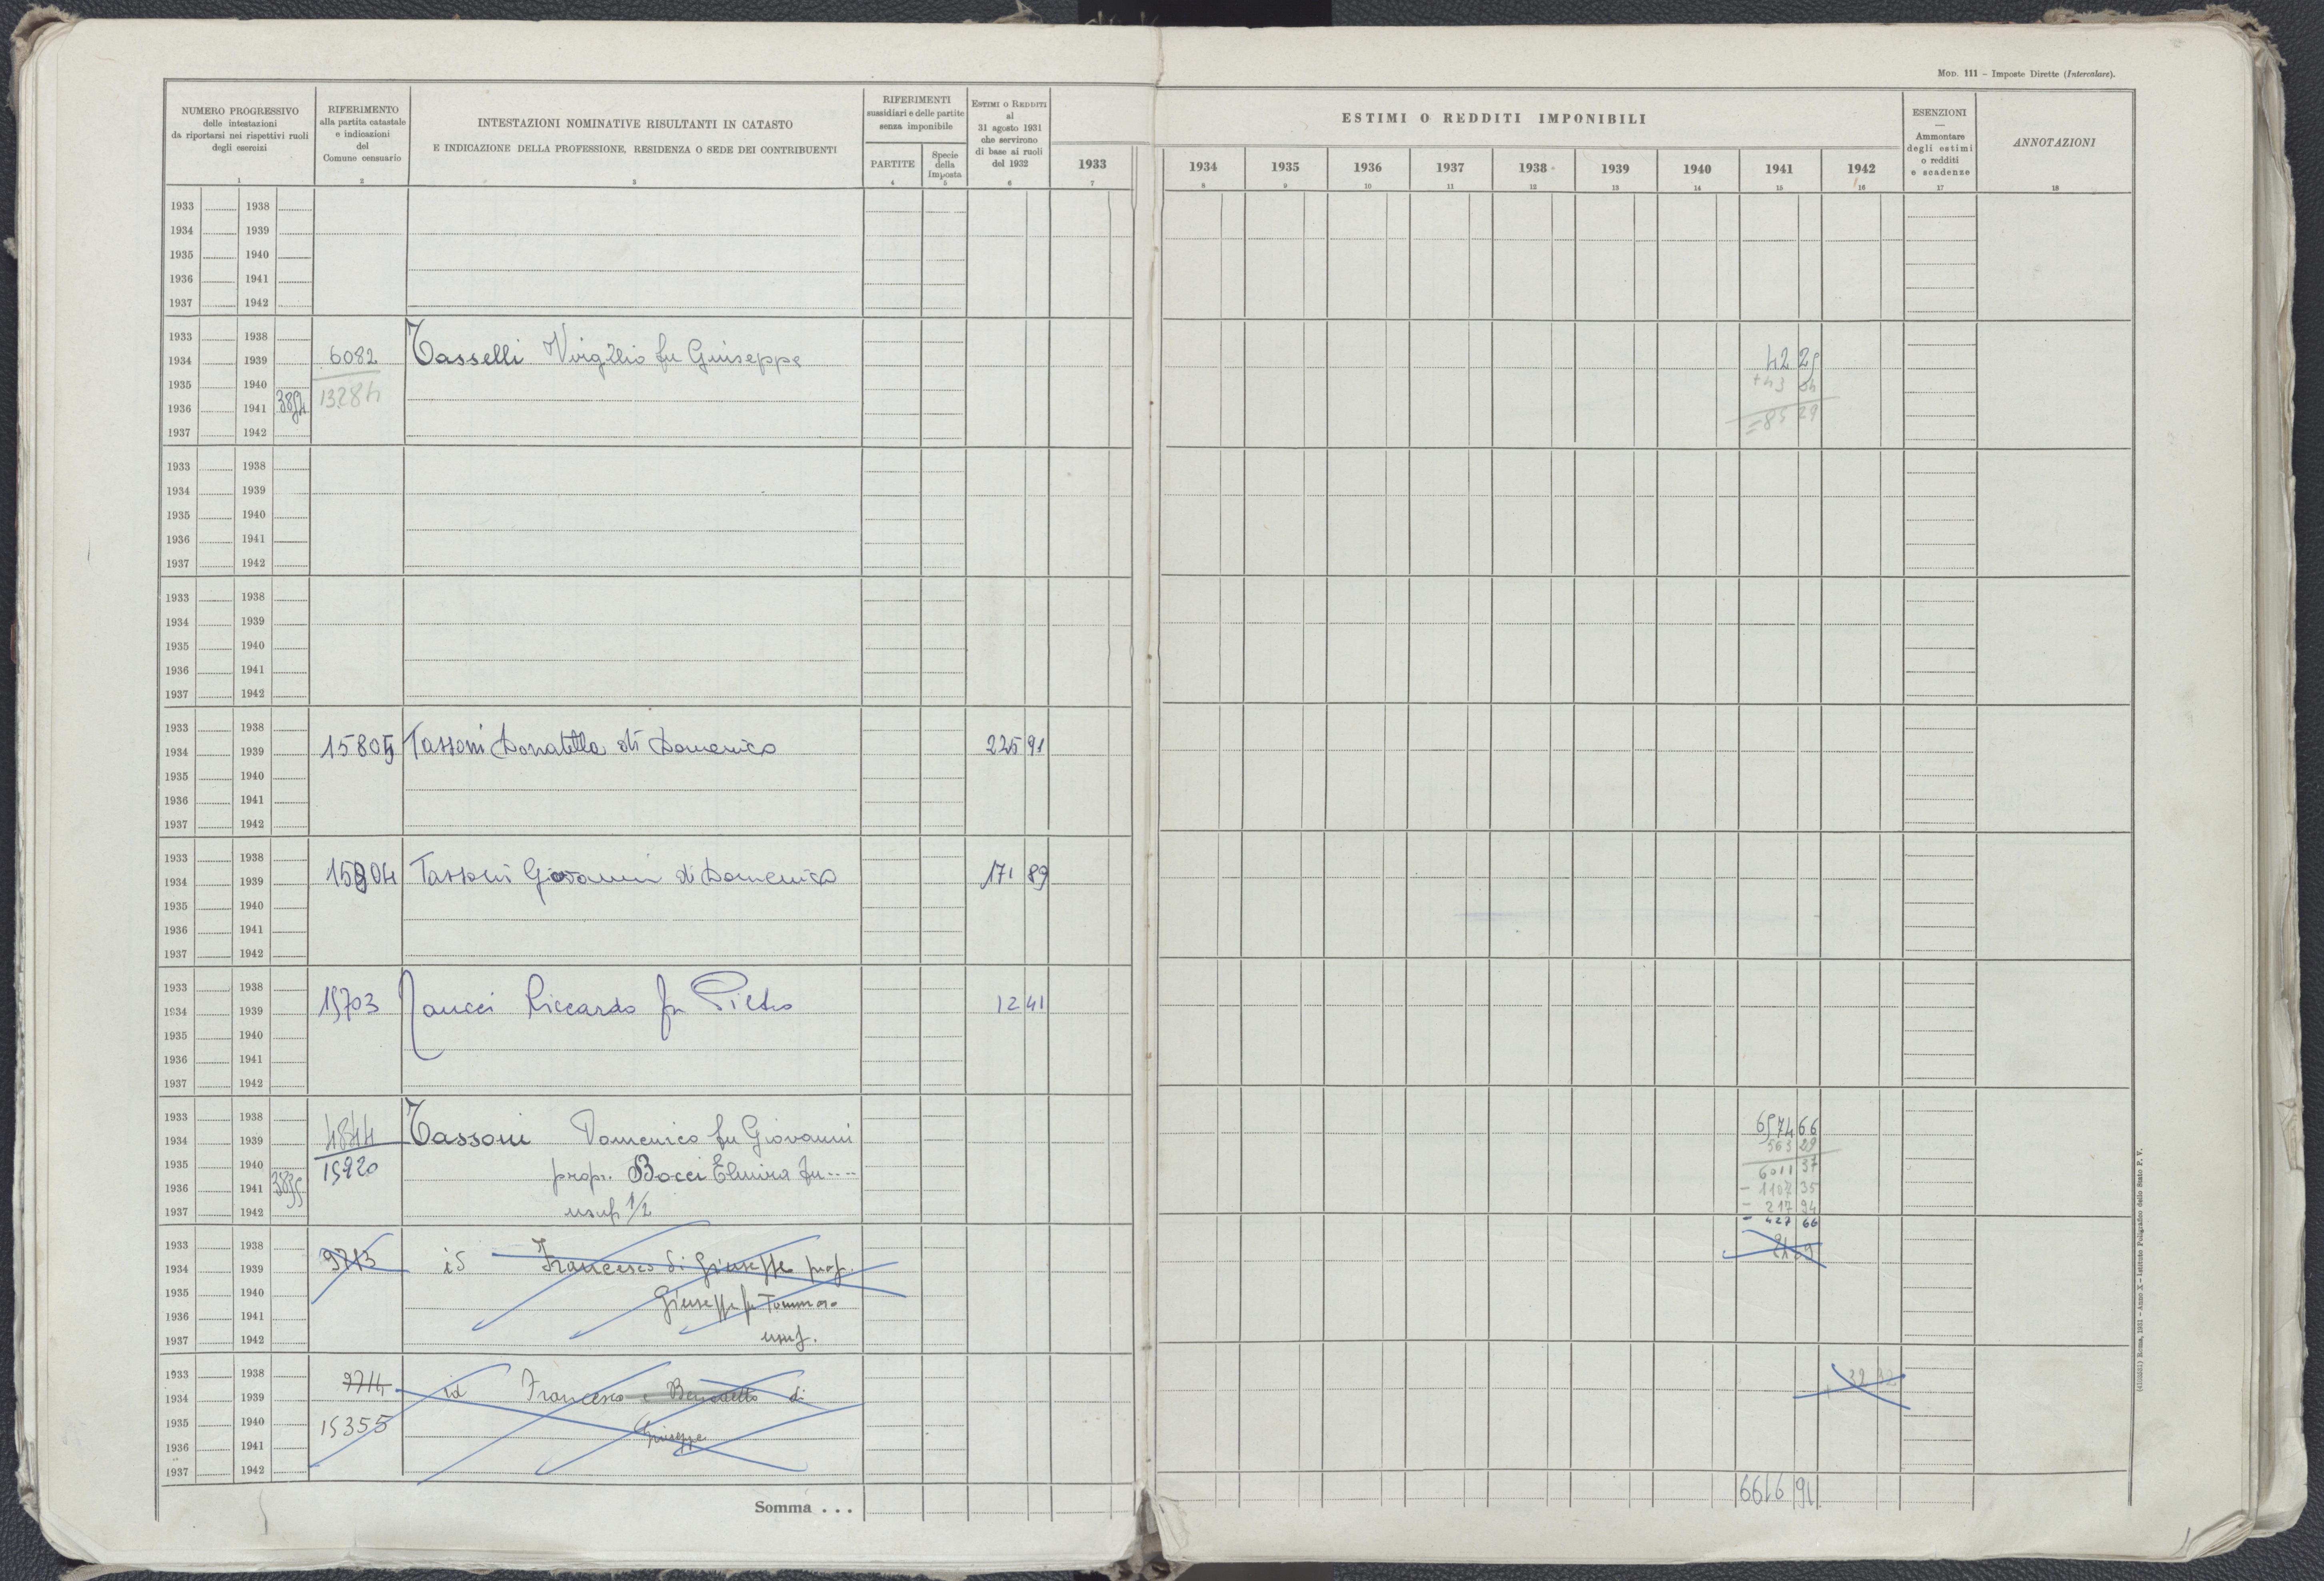 Mod. 111 - Imposte Dirette (Intercalare).
NUMERO PROGRESSIVO
delle intestazioni
da riportarsi nei rispettivi ruoli
degli esercizi
1
RIFERIMENTO
alla partita catastale
e indicazioni
del
Comune censuario
2
INTESTAZIONI NOMINATIVE RISULTANTI IN CATASTO
E INDICAZIONE DELLA PROFESSIONE, RESIDENZA O SEDE DEI CONTRIBUENTI
3
RIFERIMENTI
sussidiari e delle partite
senza imponibile
PARTITE
4
Specie
della
Imposta
5
Estimi o Redditi
al
31 agosto 1931
che servirono
di base ai ruoli
del 1932
6
1933
7
ESTIMI O REDDITI IMPONIBILI
1934 1935 1936 1937 1938 1939 1940 1941 1942
8 9 10 11 12 13 14 15 16
ESENZIONI
—
Ammontare
degli estimi
o redditi
e scadenze
17
ANNOTAZIONI
18
1933 1938
1934 1939
1935 1940
1936 1941
1937 1942
1933 1938
1934 1939 6082 Tasselli Virgilio fu Giuseppe 42 25
1935 1940 13284 +43 04
1936 1941 3894 =85 29
1937 1942
1933 1938
1934 1939
1935 1940
1936 1941
1937 1942
1933 1938
1934 1939
1935 1940
1936 1941
1937 1942
1933 1938
1934 1939 15805 Tassoni Donatella di Domenico 225 91
1935 1940
1936 1941
1937 1942
1933 1938
1934 1939 15804 Tassoni Giovanni di Domenico 171 89
1935 1940
1936 1941
1937 1942
1933 1938
1934 1939 15703 Taucci Riccardo fu Pietro 12 41
1935 1940
1936 1941
1937 1942
1933 1938 6574 66
1934 1939 4844 Tassoni Domenico fu Giovanni 563 29
1935 1940 15920 prop. Bocci Elmira fu ---- 6011 37
1936 1941 3895 - 1107 35
1937 1942 usuf 1/2 - 217 94
- 427 66
1933 1938
1934 1939 9713 id Francesco di Giuseppe prop.
1935 1940
1936 1941 Giuseppe fu Tommaso
1937 1942 usuf.
1933 1938 9714 32 92
1934 1939 id Francesco e Benedetto di
1935 1940 15355 Giuseppe
1936 1941
1937 1942
Somma . . . 6616 91
(4103231) Roma, 1931 - Anno X - Istituto Poligrafico dello Stato P. V.